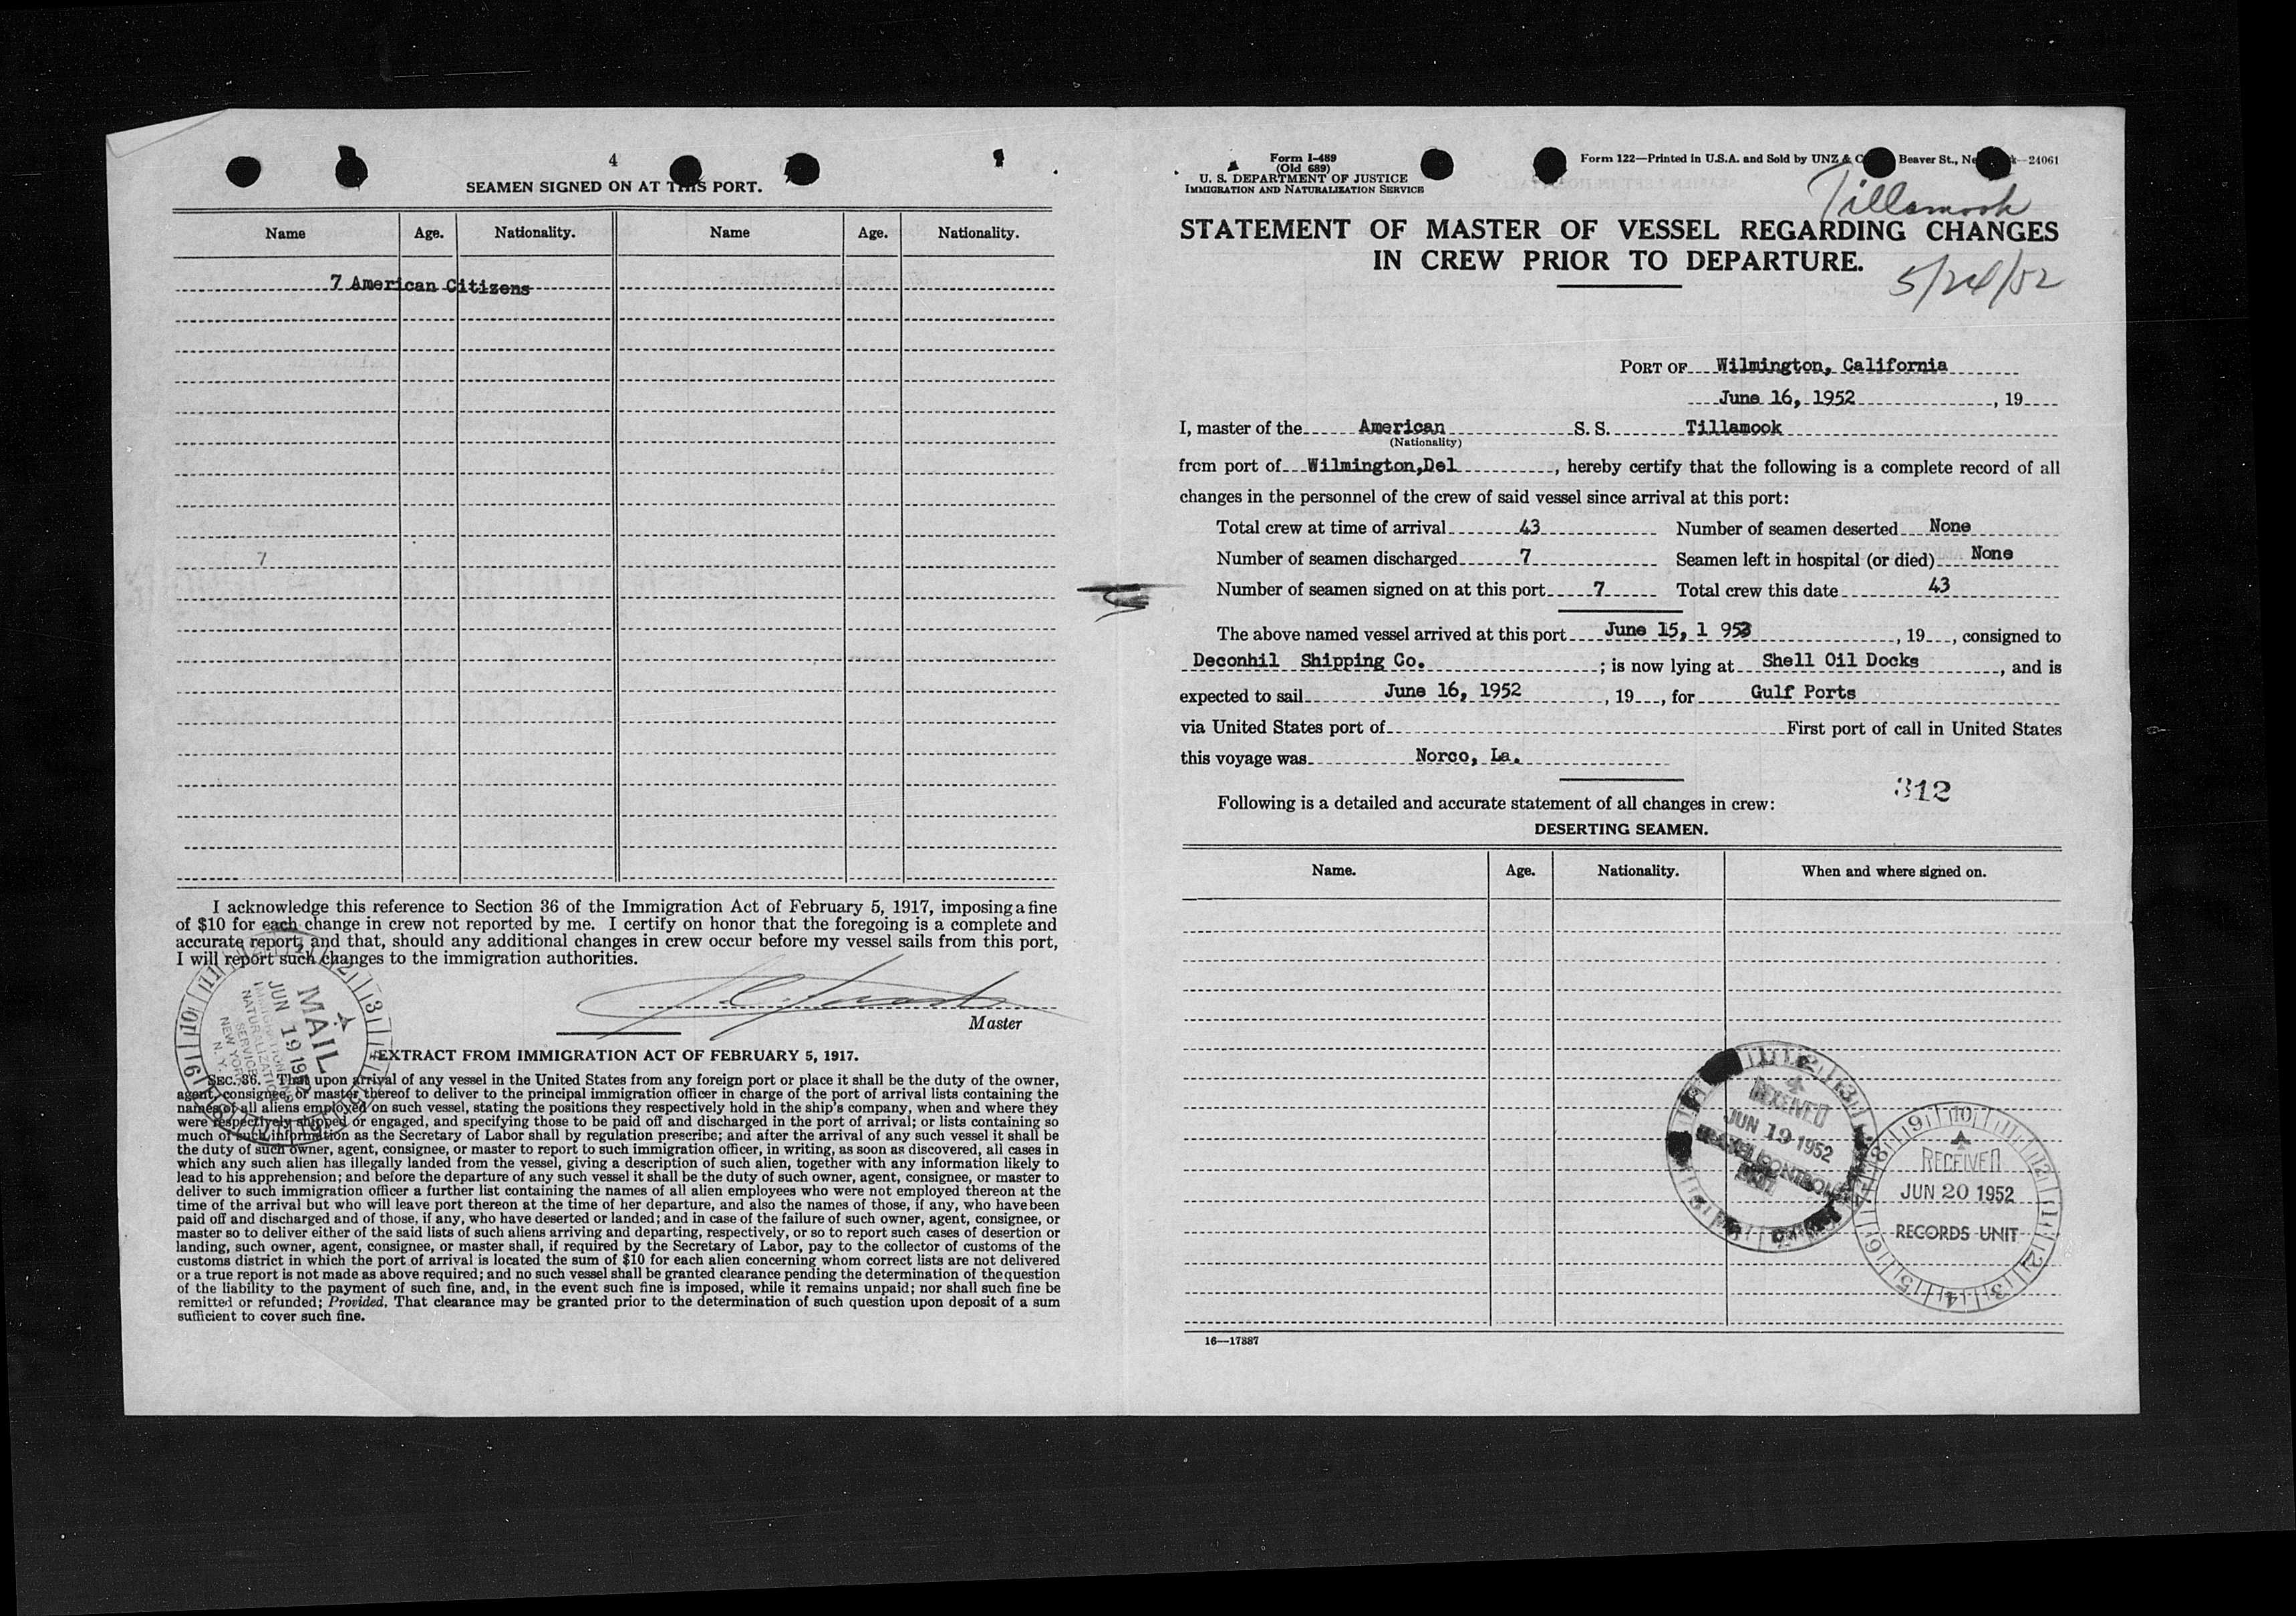 4
SEAMEN SIGNED ON AT THIS PORT.
Name Age. Nationality. Name Age. Nationality.
7 American Citizens
7
I acknowledge this reference to Section 36 of the Immigration Act of February 5, 1917, imposing a fine
of $10 for each change in crew not reported by me. I certify on honor that the foregoing is a complete and
accurate report, and that, should any additional changes in crew occur before my vessel sails from this port,
I will report such changes to the immigration authorities.
Master
MAIL
JUN 19 1952
IMMIGRATION AND
NATURALIZATION
SERVICE
NEW YORK
N. Y.
EXTRACT FROM IMMIGRATION ACT OF FEBRUARY 5, 1917.
SEC. 36. That upon arrival of any vessel in the United States from any foreign port or place it shall be the duty of the owner,
agent, consignee, or master thereof to deliver to the principal immigration officer in charge of the port of arrival lists containing the
names of all aliens employed on such vessel, stating the positions they respectively hold in the ship's company, when and where they
were respectively shipped or engaged, and specifying those to be paid off and discharged in the port of arrival; or lists containing so
much of such information as the Secretary of Labor shall by regulation prescribe; and after the arrival of any such vessel it shall be
the duty of such owner, agent, consignee, or master to report to such immigration officer, in writing, as soon as discovered, all cases in
which any such alien has illegally landed from the vessel, giving a description of such alien, together with any information likely to
lead to his apprehension; and before the departure of any such vessel it shall be the duty of such owner, agent, consignee, or master to
deliver to such immigration officer a further list containing the names of all alien employees who were not employed thereon at the
time of the arrival but who will leave port thereon at the time of her departure, and also the names of those, if any, who have been
paid off and discharged and of those, if any, who have deserted or landed; and in case of the failure of such owner, agent, consignee, or
master so to deliver either of the said lists of such aliens arriving and departing, respectively, or so to report such cases of desertion or
landing, such owner, agent, consignee, or master shall, if required by the Secretary of Labor, pay to the collector of customs of the
customs district in which the port of arrival is located the sum of $10 for each alien concerning whom correct lists are not delivered
or a true report is not made as above required; and no such vessel shall be granted clearance pending the determination of the question
of the liability to the payment of such fine, and, in the event such fine is imposed, while it remains unpaid; nor shall such fine be
remitted or refunded; Provided, That clearance may be granted prior to the determination of such question upon deposit of a sum
sufficient to cover such fine.
Form I-489
(Old 689)
U. S. DEPARTMENT OF JUSTICE
IMMIGRATION AND NATURALIZATION SERVICE
Form 122—Printed in U.S.A. and Sold by UNZ & Beaver St., 24061
Tillamook
STATEMENT OF MASTER OF VESSEL REGARDING CHANGES
IN CREW PRIOR TO DEPARTURE.
5/24/52
PORT OF Wilmington, California
June 16, 1952, 19
I, master of the American S. S. Tillamook
(Nationality)
from port of Wilmington,Del, hereby certify that the following is a complete record of all
changes in the personnel of the crew of said vessel since arrival at this port:
Total crew at time of arrival 43 Number of seamen deserted None
Number of seamen discharged 7 Seamen left in hospital (or died) None
Number of seamen signed on at this port 7 Total crew this date 43
The above named vessel arrived at this port June 15, 1 952, 19, consigned to
Deconhil Shipping Co.; is now lying at Shell Oil Docks, and is
expected to sail June 16, 1952, 19, for Gulf Ports
via United States port of First port of call in United States
this voyage was Norco, La.
312
Following is a detailed and accurate statement of all changes in crew:
DESERTING SEAMEN.
Name. Age. Nationality. When and where signed on.
RECEIVED
JUN 19 1952
RECEIVED
JUN 20 1952
RECORDS UNIT
16—17887